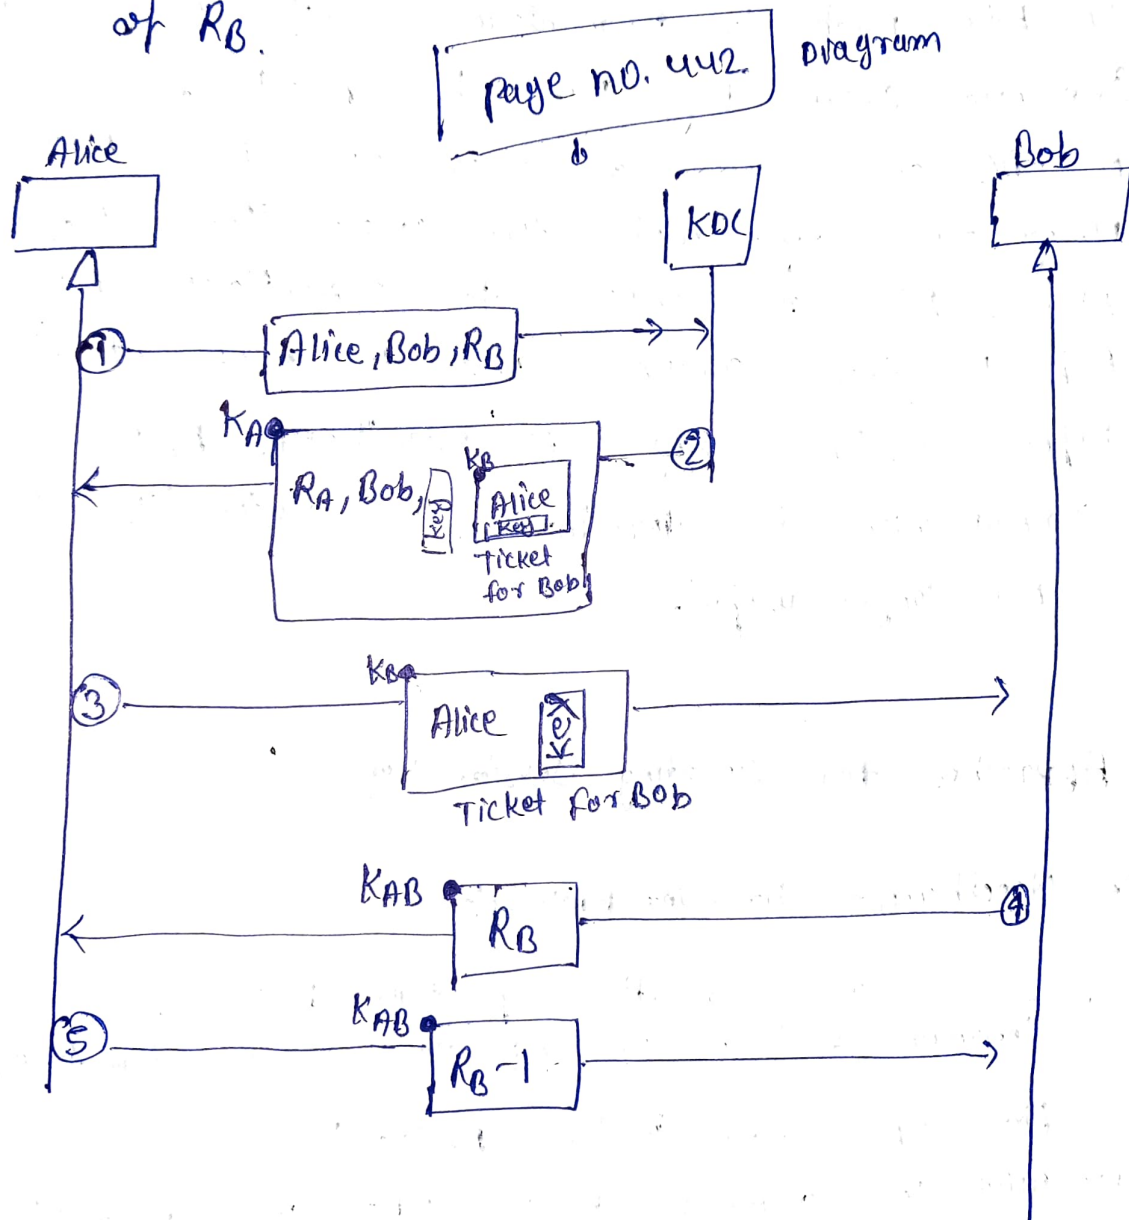 of R_B.
Page no. 442.
Diagram
Alice
KDC
Bob
1
Alice, Bob, R_B
K_A
2
R_A, Bob,
Key
K_B
Alice
Key
Ticket
for Bob
3
K_B
Alice
Key
Ticket for Bob
K_AB
R_B
4
5
K_AB
R_B-1